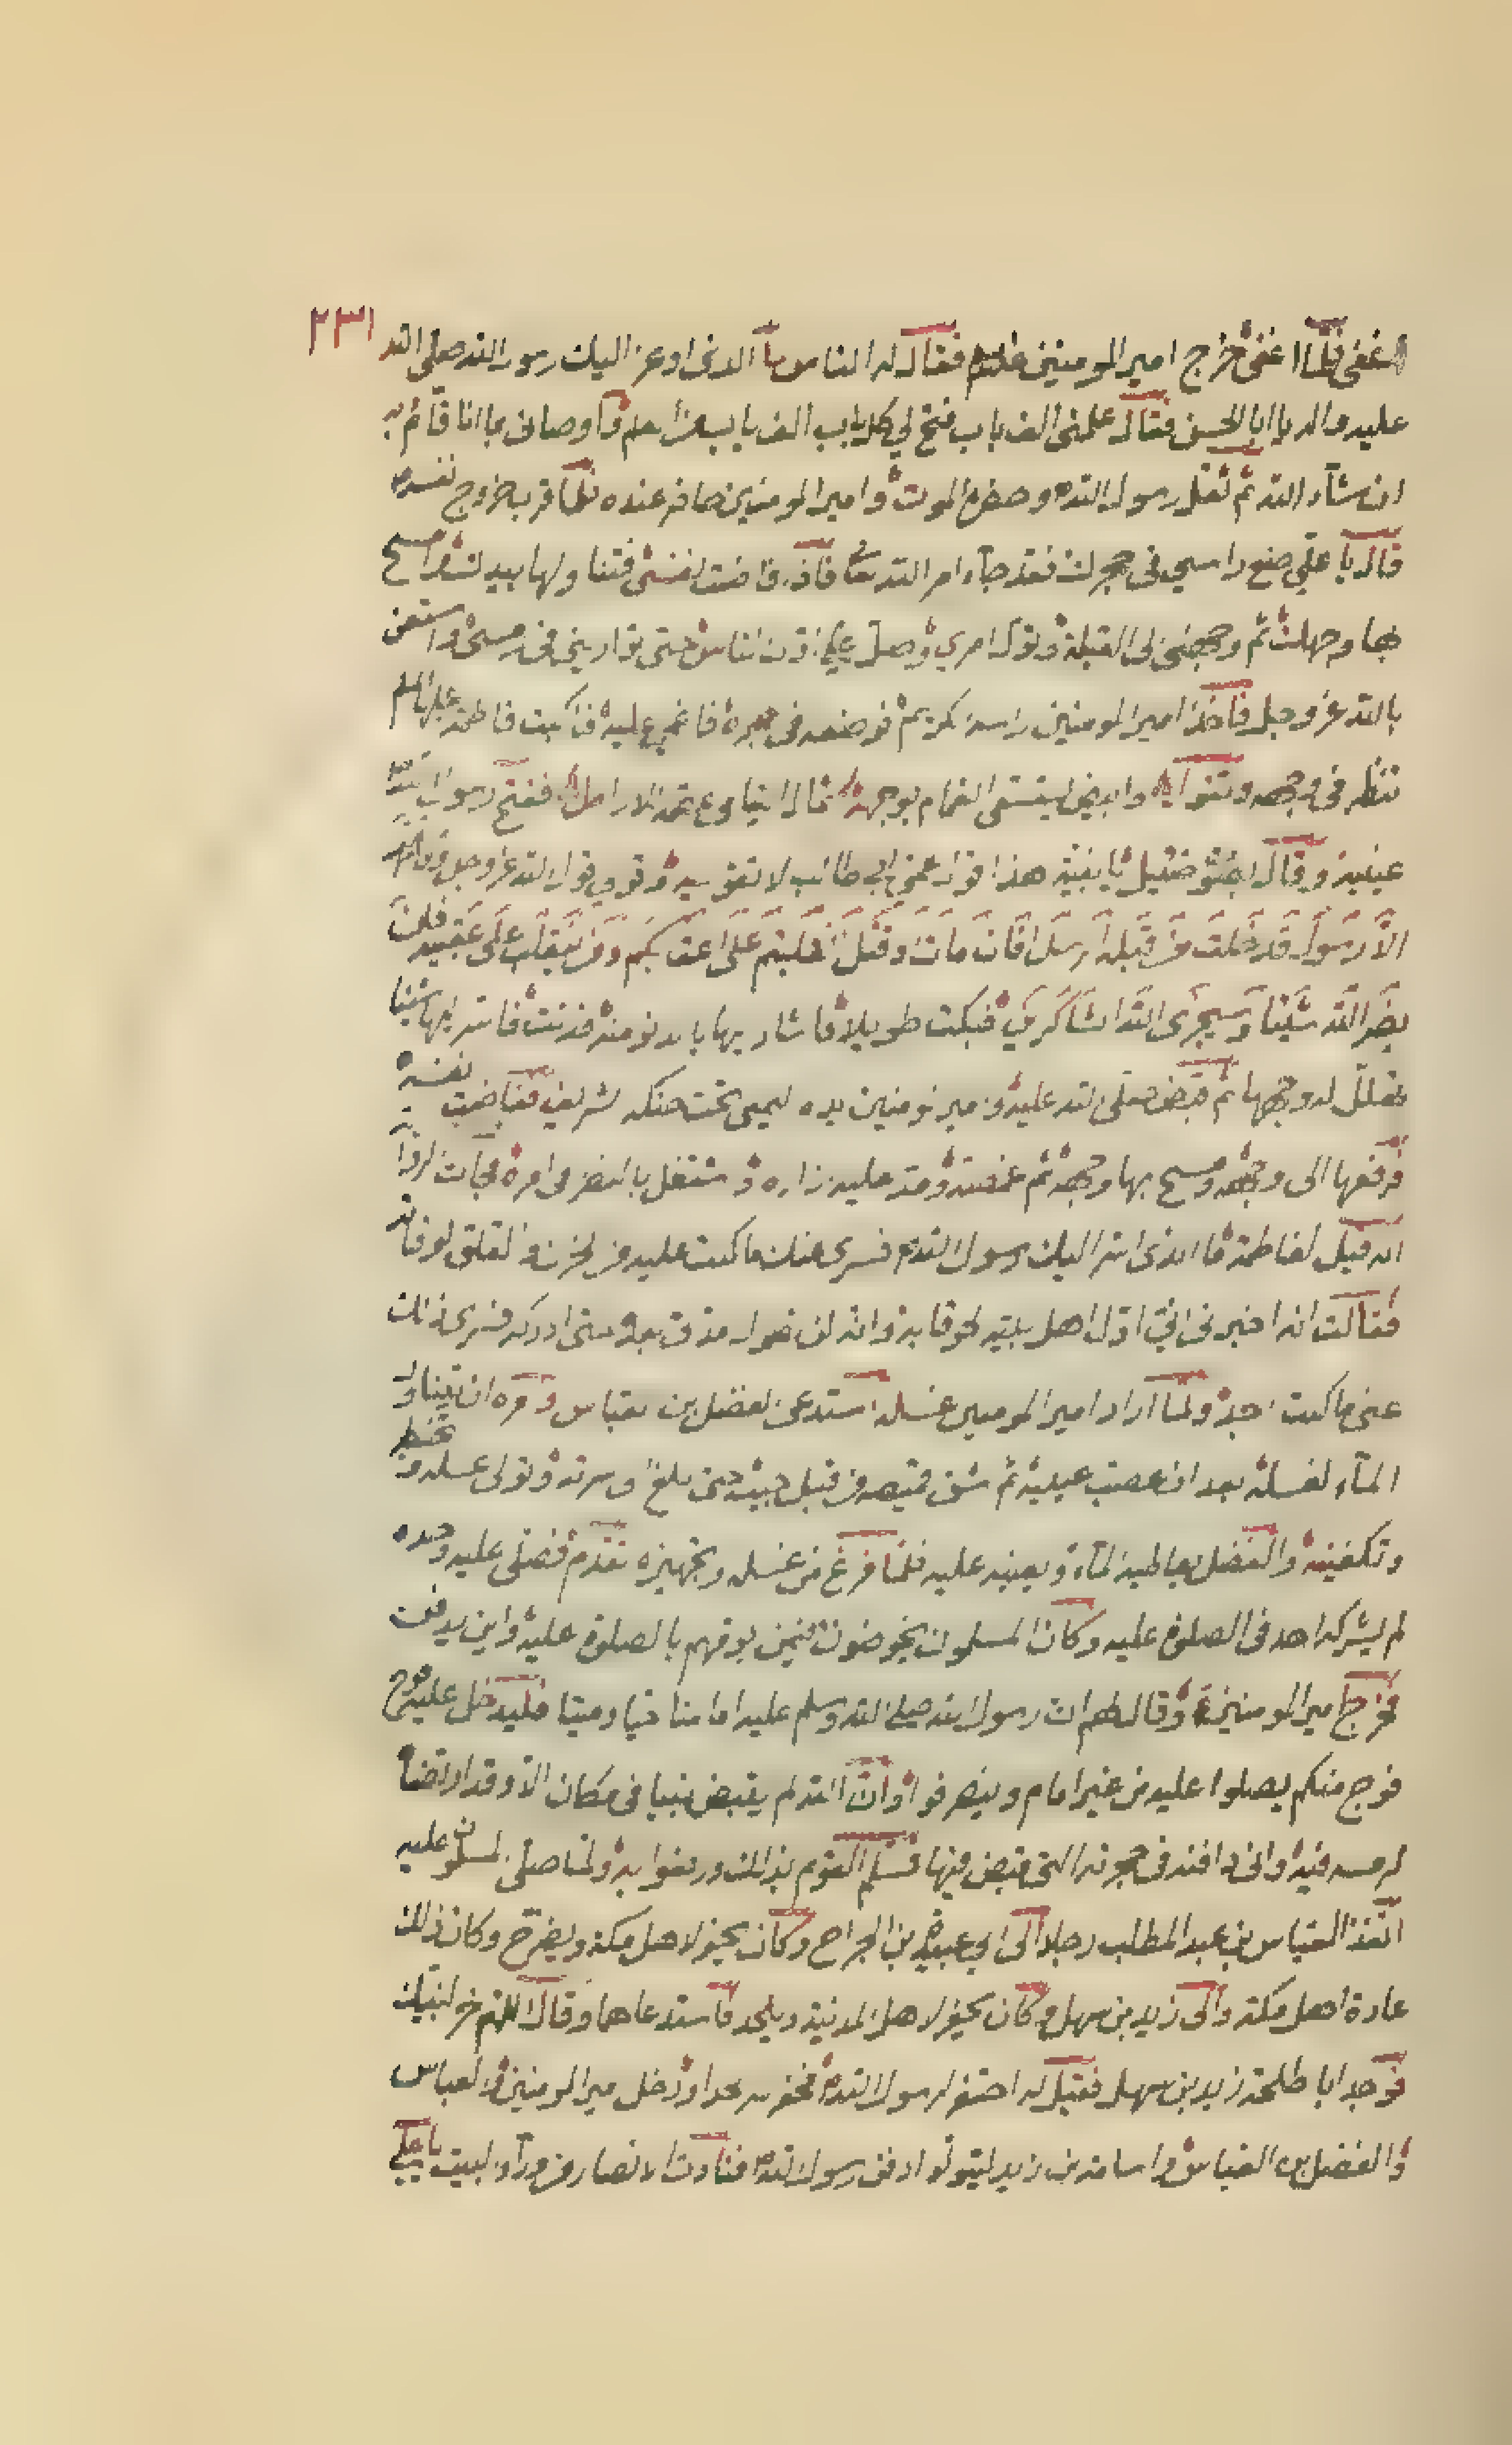 ٢٣١
اغفى فلما اغفى خرج امير المومنين علیلم فقال له الناس ما الذى اوعز اليك رسول الله صلى الله
عليه واله يا ابا الحسن فقال علمنى الف باب فتح لي كل باب الف باب واوصانى بما انا قائم به
ان شآء الله ثم ثقل رسول الله وحضره الموت وامير المومنين حاضر عنده فلما قرب خروج نفسه
قال يا علي ضع راسي في حجرك فقد جآء امر الله تعا فاذا فاضت نفسى فتناولها بيدك وامسح
بها وجهك ثم وجهنى الى القبلة وتول امري وصل علي اول الناس حتى تواريني فى رمسى واستعن
بالله عز وجل فاخذ امير المومنين راسه الكريم فوضعه فى حجره فاغمى عليه فاكبت فاطمة عليها السلم
تنظر فى وجهه وتقول وابيض يستسقى الغمام بوجهه ثمال اليتامى عصمة للارامل ففتح رسول الله
عينيه وقال بصوت ضئيل يا بنية هذا قول عمى ابي طالب لا تقوليه قولي قول الله عز وجل وما محمد
الا رسول قد خلت من قبله الرسل افان مات او قتل انقلبتم على اعقابكم ومن ينقلب على عقبيه فلن
يضر الله شيئا وسيجزى الله الشاكرين فبكت طويلا فاشار اليها بالدنو منه فدنت فاسر اليها شيئا
تهلل له وجهها ثم قبض صلى الله عليه وامير المومنين يده اليمنى تحت حنكه الشريف ففاضت نفسه
فرفعها الى وجهه ومسح بها وجهه ثم غمضه ومد عليه ازاره واشتغل بالنظر فى امره فجآت الرواية
انه قيل لفاطمة ما الذى اسر اليك رسول الله فسرى عنك ما كنت عليه من الحزن والقلق لوفاته
فقالت انه اخبرنى اني اول اهل بيته لحوقا به وانه لن تطول المدة بعده حتى ادركه فسرى ذلك
عنى ما كنت اجد ولما اراد امير المومنين غسله استدعى الفضل بن العباس وامره ان يناوله
المآء لغسله بعد ان عصب عينيه ثم شق قميصه من قبل جيبه حتى بلغ الى سرته وتولى غسله وتحنيطه
وتكفينه والفضل يعاطيه المآء ويعينه عليه فلما فرغ من غسله وتجهيزه تقدم فصلى عليه وحده
لم يشركه احد فى الصلوة عليه وكان المسلمون يخوضون فيمن يومهم بالصلوة عليه واين يدفن
فخرج امير المومنين وقال لهم ان رسول الله صلى الله وسلم عليه امامنا حيا وميتا فليدخل عليه فوج
فوج منكم يصلوا عليه من غير امام وينصرفوا وان الله لم يقبض نبيا فى مكان الا وقد ارتضاه
لرمسه فيه وانى دافنه فى حجرته التى قبض فيها فسلم القوم بذالك ورضوا به ولما صلى المسلمون عليه
انفذ العباس بن عبد المطلب رجلا الى ابي عبيدة بن الجراح وكان يحفر لاهل مكة ويضرح وكان ذلك
عادة اهل مكة والى زيد بن سهل وكان يحفر لاهل المدينة ويلحد فاستدعاهما وقال اللهم خر لنبيك
فوجد ابا طلحة زيد بن سهل فقيل له احتفر لرسول الله فحفر له لحدا ودخل امير المومنين والعباس
والفضل بن العباس واسامة بن زيد ليتولوا دفن رسول الله فنادت الانصار من ورآء البيت يا علي